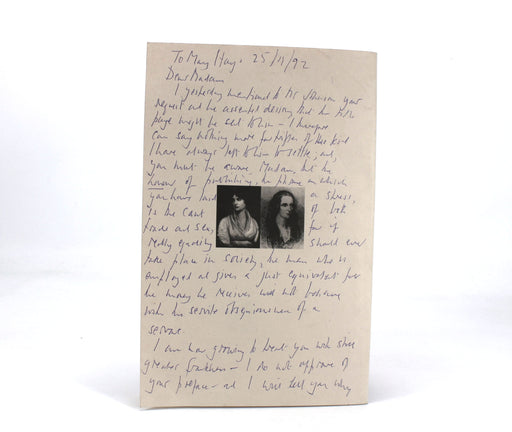 To Mary Hays 25/11/92
Dear Madam
I yesterday mentioned to Mr Johnson your
request and he assented desiring that the title
page might be sent to him – I therefore
can say nothing more for trifles of this kind
I have always left to him to settle; and,
you must be aware, Madam, that the
honour of publishing, the phrase on which
you have laid a stress,
is the cant of both
trade and sex; for if
really equality should ever
take place in society, the man who is
employed and gives a just equivalent for
the money he receives will not behave
with the servile obsequiousness of a
servant.
I am now going to treat you with still
greater frankness – I do not approve of
your preface – and I will tell you why